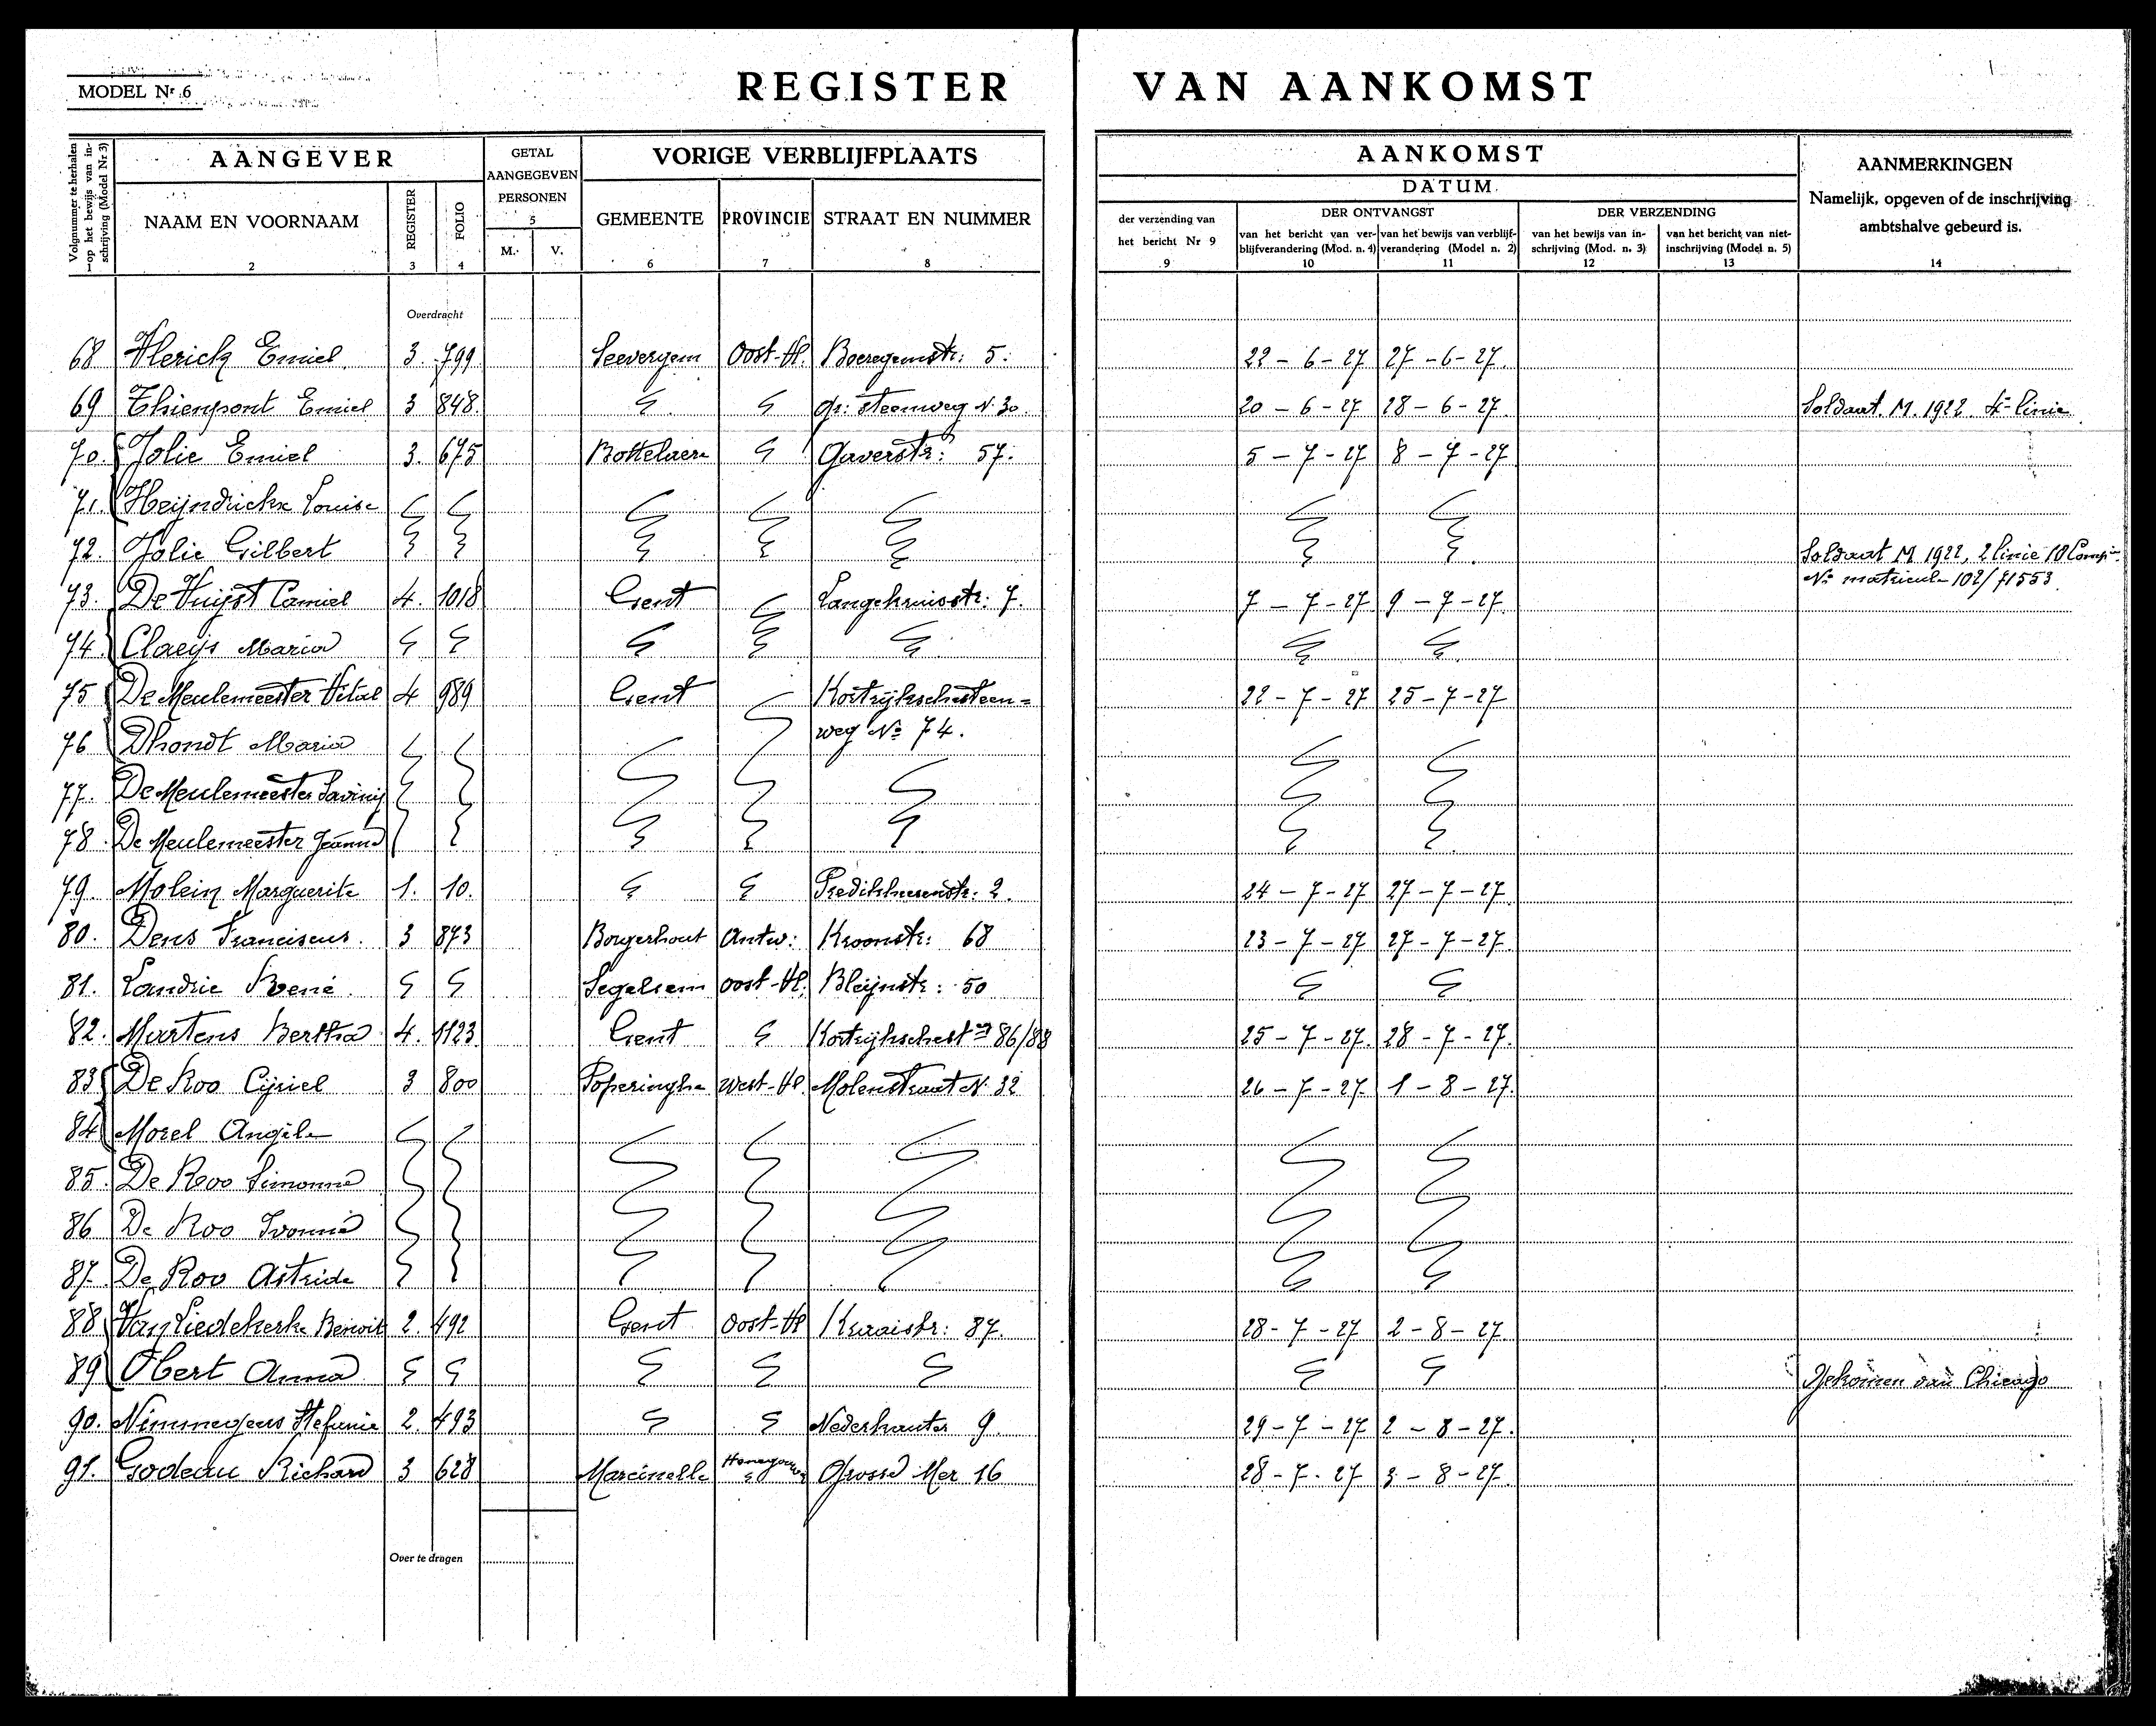 MODEL Nr 6
REGISTER VAN AANKOMST
Volgnummer te herhalen op het bewijs van inschrijving (Model Nr 3)
AANGEVER
GETAL AANGEGEVEN PERSONEN
VORIGE VERBLIJFPLAATS
AANKOMST
AANMERKINGEN
Namelijk, opgeven of de inschrijving
ambtshalve gebeurd is.
DATUM
NAAM EN VOORNAAM
REGISTER
FOLIO
M. V.
GEMEENTE
PROVINCIE
STRAAT EN NUMMER
der verzending van het bericht Nr 9
DER ONTVANGST
DER VERZENDING
van het bericht van verblijfverandering (Mod. n. 4)
van het bewijs van verblijfverandering (Model n. 2)
van het bewijs van inschrijving (Mod. n. 3)
van het bericht van niet-inschrijving (Model n. 5)
1 2 3 4 5 6 7 8 9 10 11 12 13 14
Overdracht
68 Vlerick Emiel 3. 799. Seevergem Oost-Vl. Boeregemstr: 5. 22 - 6 - 27 27 - 6 - 27.
69 Thienpont Emiel 3 848. gr: steenweg N. 30. 20 - 6 - 27 28 - 6 - 27. Soldaat. M. 1922. 4e linie
70. Jolie Emiel 3. 675 Bottelaere Gaverstr: 57. 5 - 7 - 27 8 - 7 - 27
71. Heijndrickx Louise
72. Jolie Gilbert Soldaat M 1922, 2 linie 10 Compie
No matricule 102/71553.
73. De Vuijst Camiel 4. 1018 Gent Langekruisstr: 7. 7 - 7 - 27 9 - 7 - 27.
74 Claeijs Maria
75 De Meulemeester Vital 4 989 Gent Kortrijkschesteen= 22 - 7 - 27 25 - 7 - 27
weg No 74.
76 Dhondt Maria
77. De Meulemeester
78. De Meulemeester Jeanne
79. Molein Marguerite 1. 10. Predikheerenstr: 2. 24 - 7 - 27 27 - 7 - 27
80. Dens Franciscus. 3 873 Borgerhout Antw: Kroonstr: 68 23 - 7 - 27 27 - 7 - 27.
81. Landrie René. Segelsem Oost-Vl. Bleijnstr: 50
82. Martens Bertha 4. 1123 Gent Kortrijkschest wg 86/88 25 - 7 - 27. 28 - 7 - 27.
83 De Roo Cijriel 3 800 Poperinghe West-Vl. Molenstraat N. 32 26 - 7 - 27. 1 - 8 - 27.
84 Morel Angèle
85. De Roo Simonne
86 De Roo Ivonne
87. De Roo Astride
88 Van Liedekerke Benoit 2. 492 Gent Oost-Vl Kraaistr: 87. 28 - 7 - 27 2 - 8 - 27.
89 Obert Anna Gekomen van Chicago
90. Nimmegeers Stefanie 2. 493 Nederkouter 9. 29 - 7 - 27 2 - 8 - 27.
91. Godeau Richard 3 628 Marcinelle Henegouwen 16 28 - 7 - 27 3 - 8 - 27.
Over te dragen